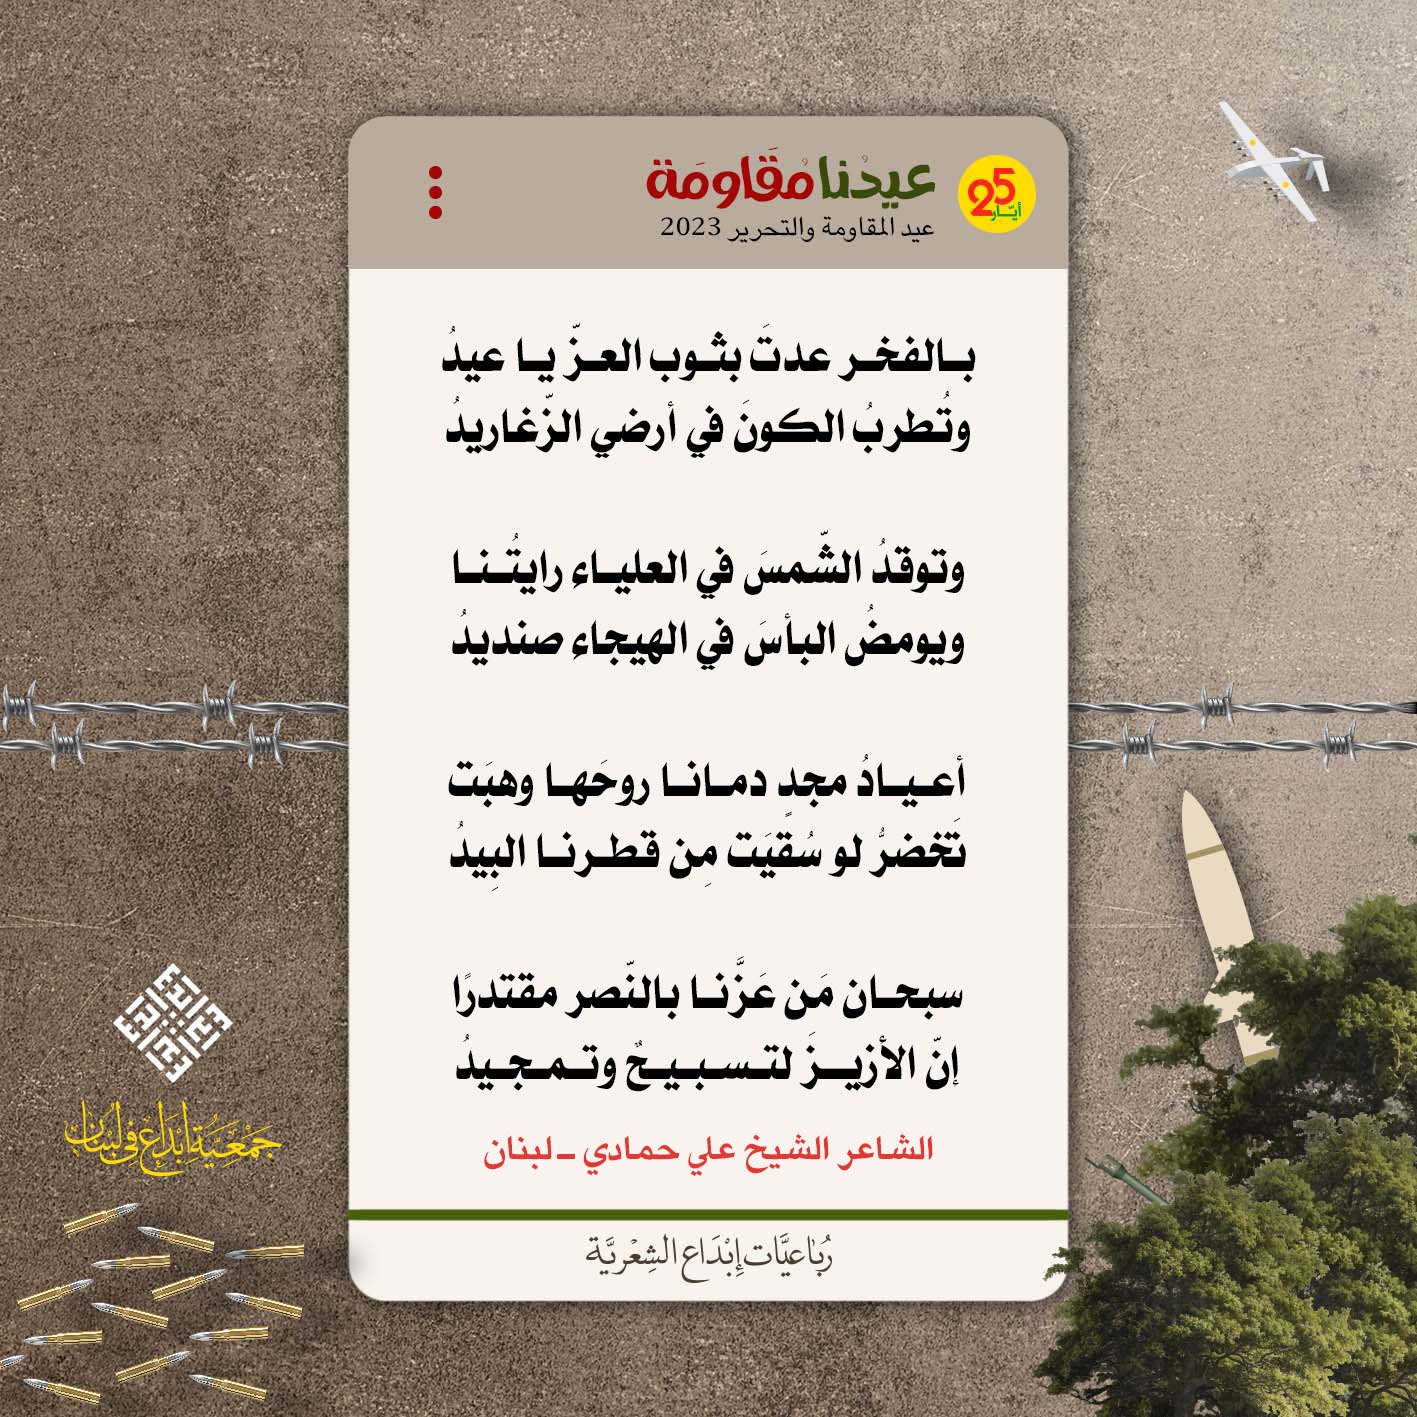 25
أيّار
عيدُنا مُقَاوَمَة
عيد المقاومة والتحرير 2023
بالفخر عدتَ بثوب العزّ يا عيدُ
وتُطربُ الكونَ في أرضي الزّغاريدُ
وتوقدُ الشّمسَ في العلياء رايتُنا
ويومضُ البأسَ في الهيجاء صنديدُ
أعيادُ مجدٍ دمانا روحَها وهبَت
تَخضرُّ لو سُقيَت مِن قطرنا البِيدُ
سبحان مَن عَزَّنا بالنّصر مقتدرًا
إنّ الأزيزَ لتسبيحٌ وتمجيدُ
الشاعر الشيخ علي حمادي - لبنان
رُبَاعيَّات إِبْدَاع الشِعْريَّة
جَمْعِيَّةِ إبْدَاع في لبْنَان